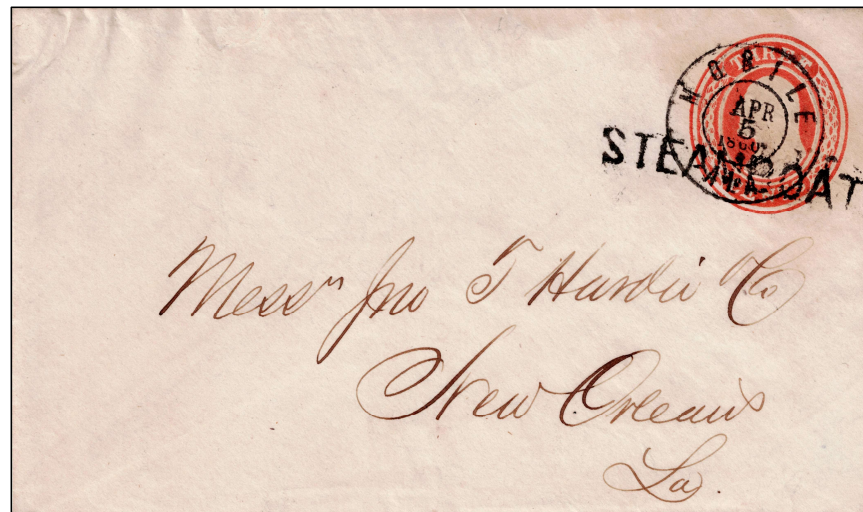 THREE
MOBILE
APR
5
1860
ALA.
STEAMBOAT
Messrs Jno T Hardie & Co
New Orleans
La.